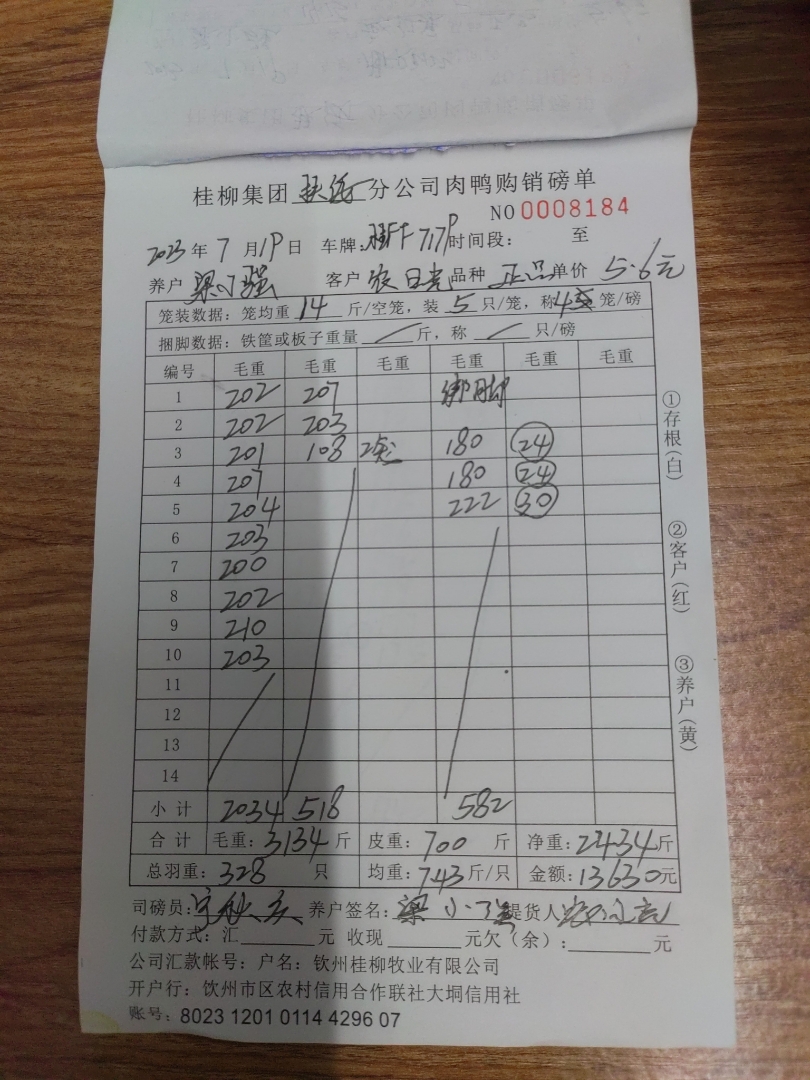 桂柳集团 扶绥 分公司肉鸭购销磅单
NO 0008184
2023 年 7 月 19 日 车牌: 717P 时间段: 至
养户 梁小强 客户 农日亮 品种 正品 单价 5.6元
笼装数据: 笼均重 14 斤/空笼, 装 5 只/笼, 称 4 笼/磅
捆脚数据: 铁筐或板子重量 / 斤, 称 / 只/磅
编号 毛重 毛重 毛重 毛重 毛重 毛重
1 202 207 绑脚
2 202 203
3 201 108 2笼 180 24
4 207 180 24
5 204 222 30
6 203
7 200
8 202
9 210
10 203
11
12
13
14
小计 2034 518 582
合计 毛重: 3134 斤 皮重: 700 斤 净重: 2434 斤
总羽重: 328 只 均重: 743 斤/只 金额: 13630 元
司磅员: 养户签名: 梁小强 提货人
付款方式: 汇 元 收现 元欠(余): 元
公司汇款帐号: 户名: 钦州桂柳牧业有限公司
开户行: 饮州市区农村信用合作联社大垌信用社
账号: 8023 1201 0114 4296 07
①存根(白)
②客户(红)
③养户(黄)